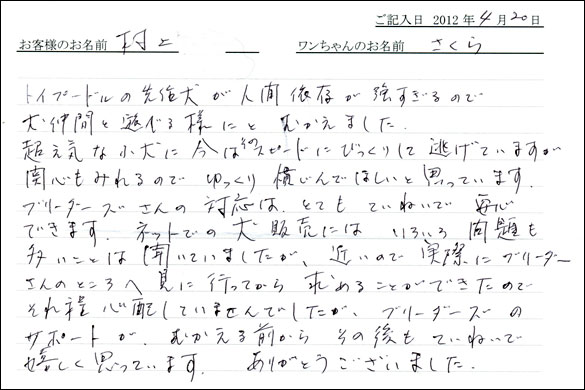 ご記入日 2012年4月20日
お客様のお名前 村上 ワンちゃんのお名前 さくら
トイプードルの先住犬が人間依存が強すぎるので
犬仲間と遊べる様にと むかえました.
超元気な小犬に今はそのスピードにびっくりして逃げていますが
関心もみれるので ゆっくり慣じんでほしいと思っています.
ブリーダーズさんの対応は. とても ていねいで 安心
できます. ネットでの犬販売には いろいろ問題も
多いことは 聞いていましたが、近いので実際にブリーダー
さんのところへ見に行ってから 求めることができたので
それ程心配していませんでしたが、ブリーダーズの
サポートが、むかえる前からその後もていねいで
嬉しく思っています. ありがとうございました.